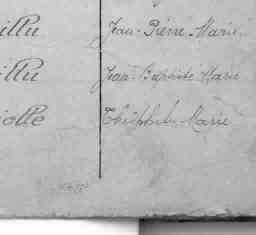 illu Jean-Pierre-Marie
illu Jean Baptiste Marie
iolle Théophile Marie